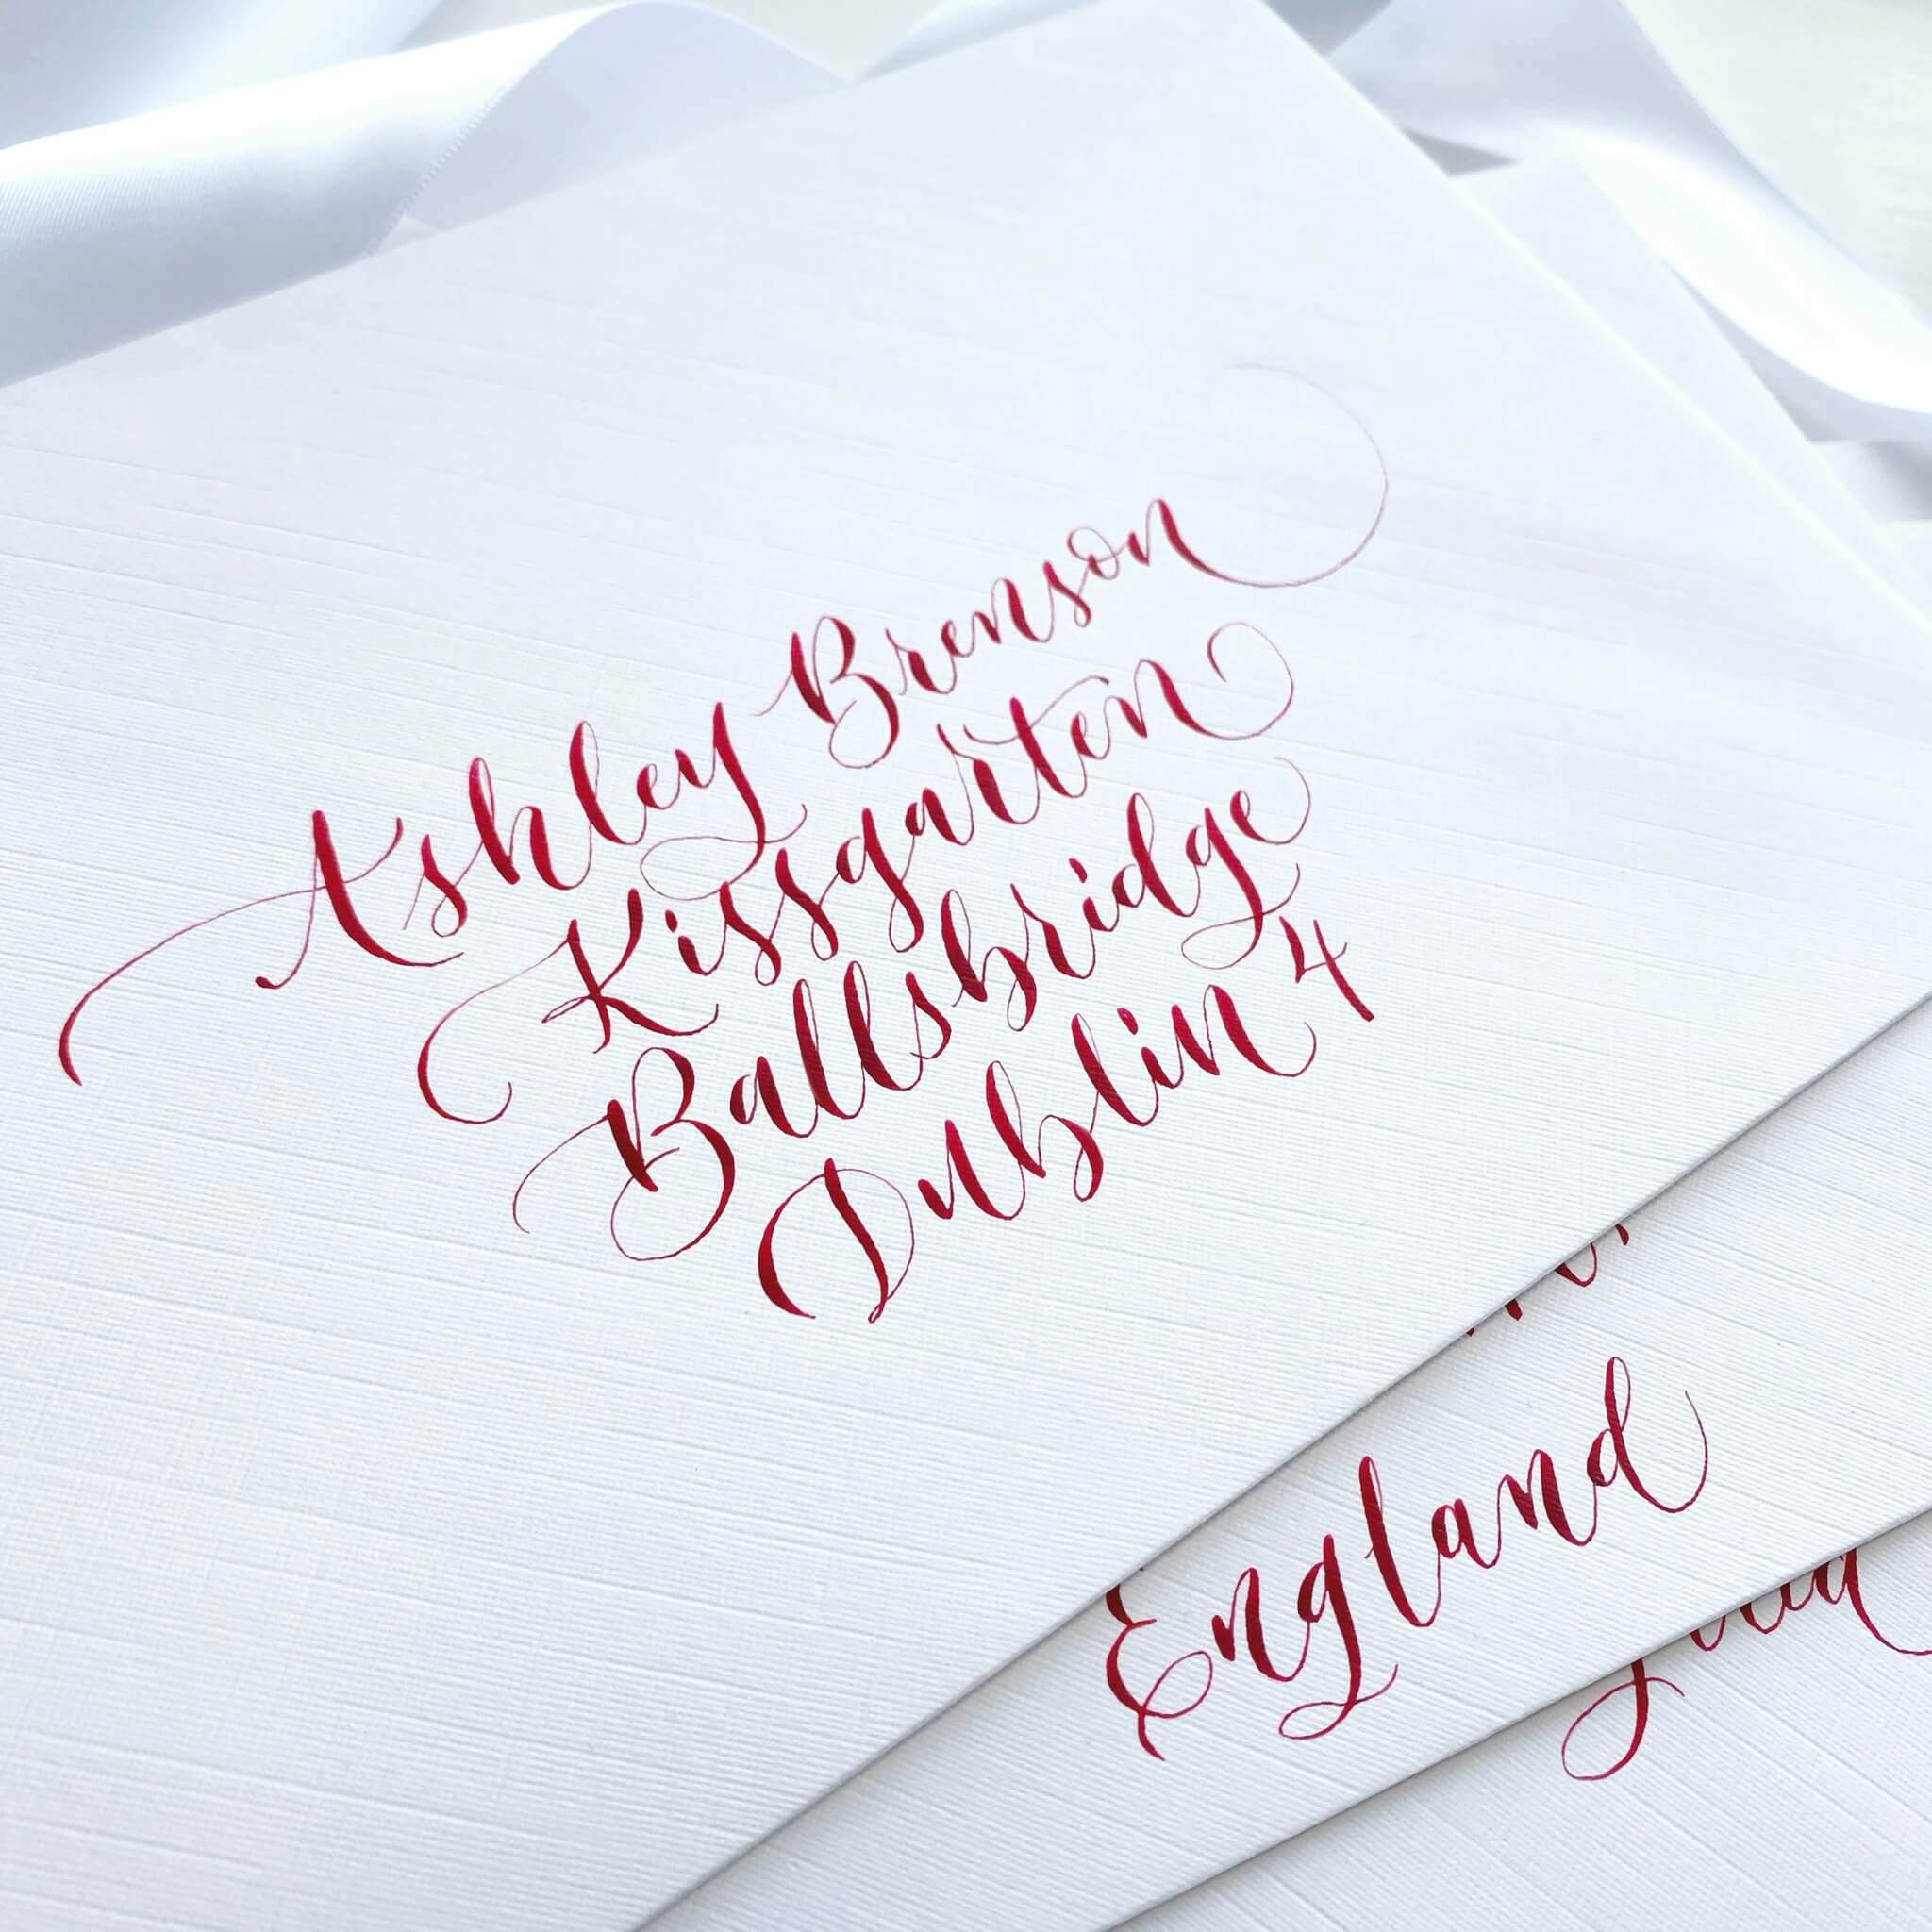 Ashley Brenson
Kissgarten
Ballsbridge
Dublin 4
England